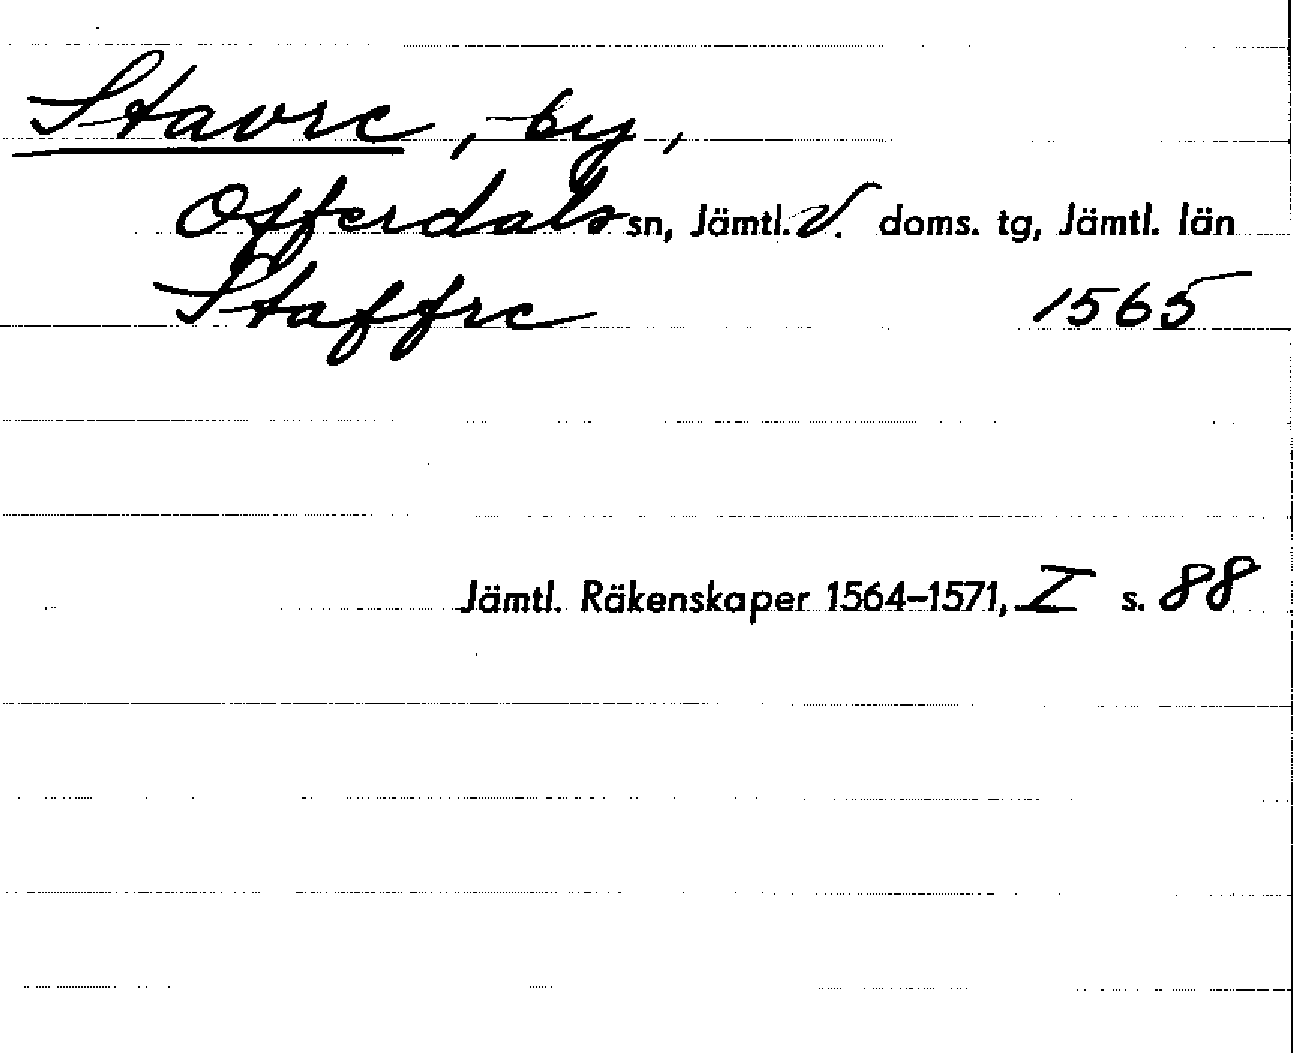 Stavre, by,
Offerdals sn, Jämtl. V. doms. tg, Jämtl. län
Staffre 1565
Jämtl. Räkenskaper 1564-1571, I s. 88